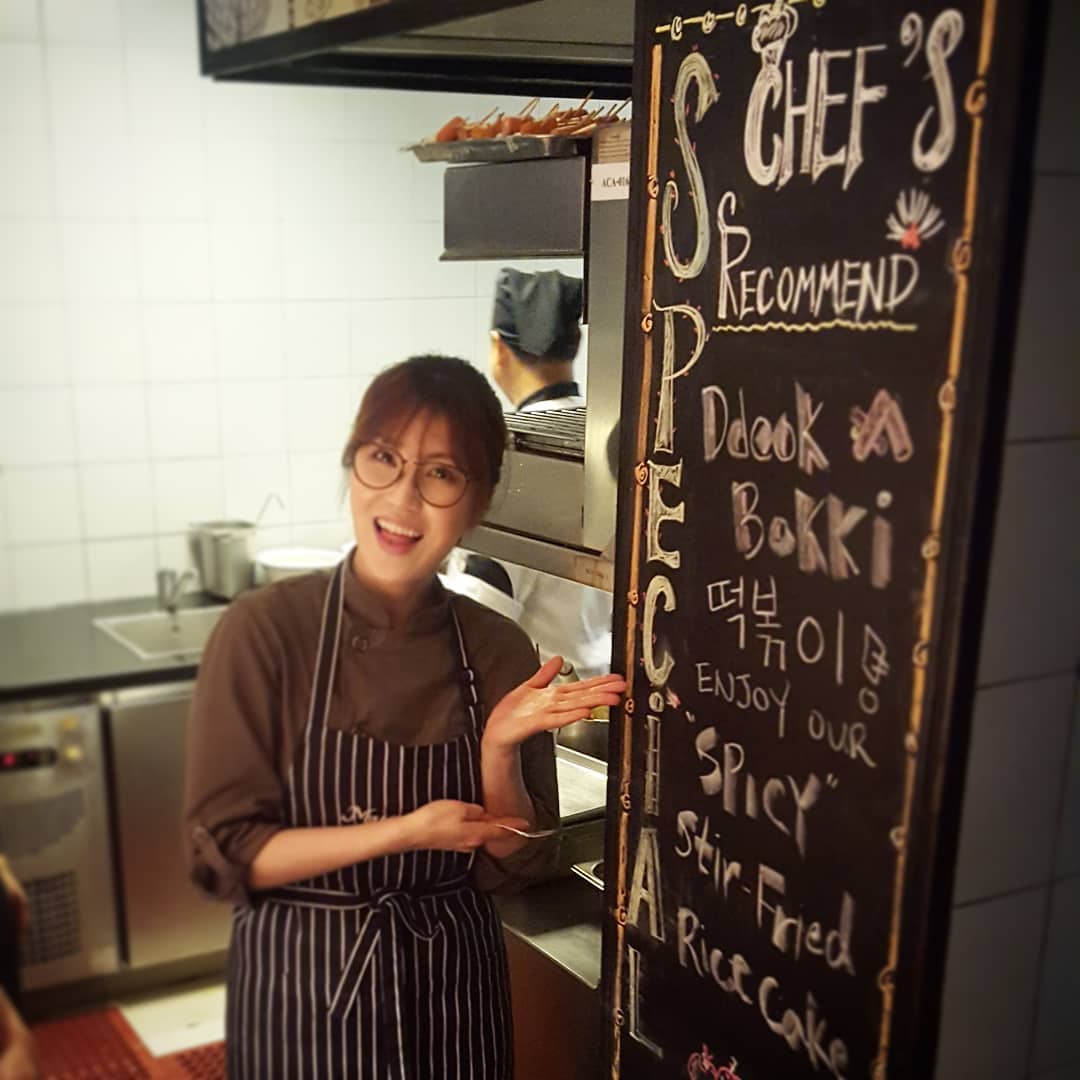 SPECiAL
CHEF'S
RECOMMEND
Ddeok
Bokki
떡볶이
ENJOY OUR
"SPICY"
Stir-Fried
Rice Cake